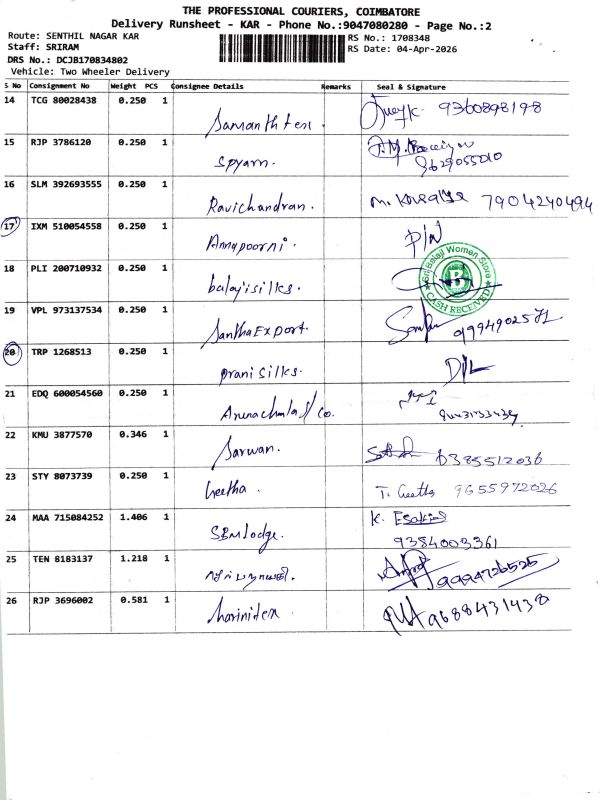 THE PROFESSIONAL COURIERS, COIMBATORE
Delivery Runsheet - KAR - Phone No.:9047080280 - Page No.:2
Route: SENTHIL NAGAR KAR
RS No.: 1708348
Staff: SRIRAM
RS Date: 04-Apr-2026
DRS No.: DCJB170834802
Vehicle: Two Wheeler Delivery
S No Consignment No Weight PCS Consignee Details Remarks Seal & Signature
14 TCG 80028438 0.250 1 9360898198
15 RJP 3786120 0.250 1 Spyarn. 9629055010
16 SLM 392693555 0.250 1 Ravichandran. 7904240494
17 IXM 510054558 0.250 1 Annapoorni. P/N
18 PLI 200710932 0.250 1 balaji silks.
Sri Balaji Women Store
B
CASH RECEIVED
19 VPL 973137534 0.250 1 Santha Export.
20 TRP 1268513 0.250 1 prani silks. D/L
21 EDQ 600054560 0.250 1
22 KMU 3877570 0.346 1 Sarwan. 6385512036
23 STY 8073739 0.250 1 Geetha. T. Geetha 9655972026
24 MAA 715084252 1.406 1 SBM lodge. K. Esakies
9384003361
25 TEN 8183137 1.218 1
26 RJP 3696002 0.581 1 harinitex 9688431438